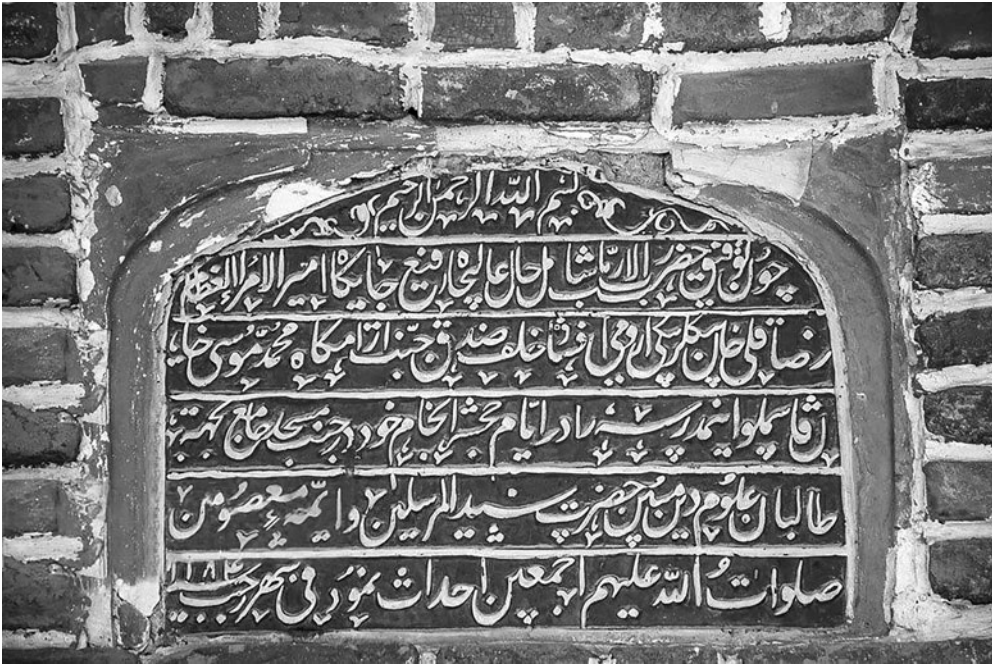 بسم الله الرحمن الرحیم
چون توفیق حضرت اله شامل حال عالیجاه رفیع جایگاه امیر الامراء العظام
رضا قلی خان بیگلربیگی ارومی افشار خلف صدق جنت آرامگاه محمد موسی خان
قاسملو اینمدرسه را در ایام خجسته انجام خود در جنب مسجد جامع بجهته
طالبان علوم دین مبین حضرت سید المرسلین و ائمه معصومین
صلوات الله علیهم اجمعین احداث نمود فی شهر رجب